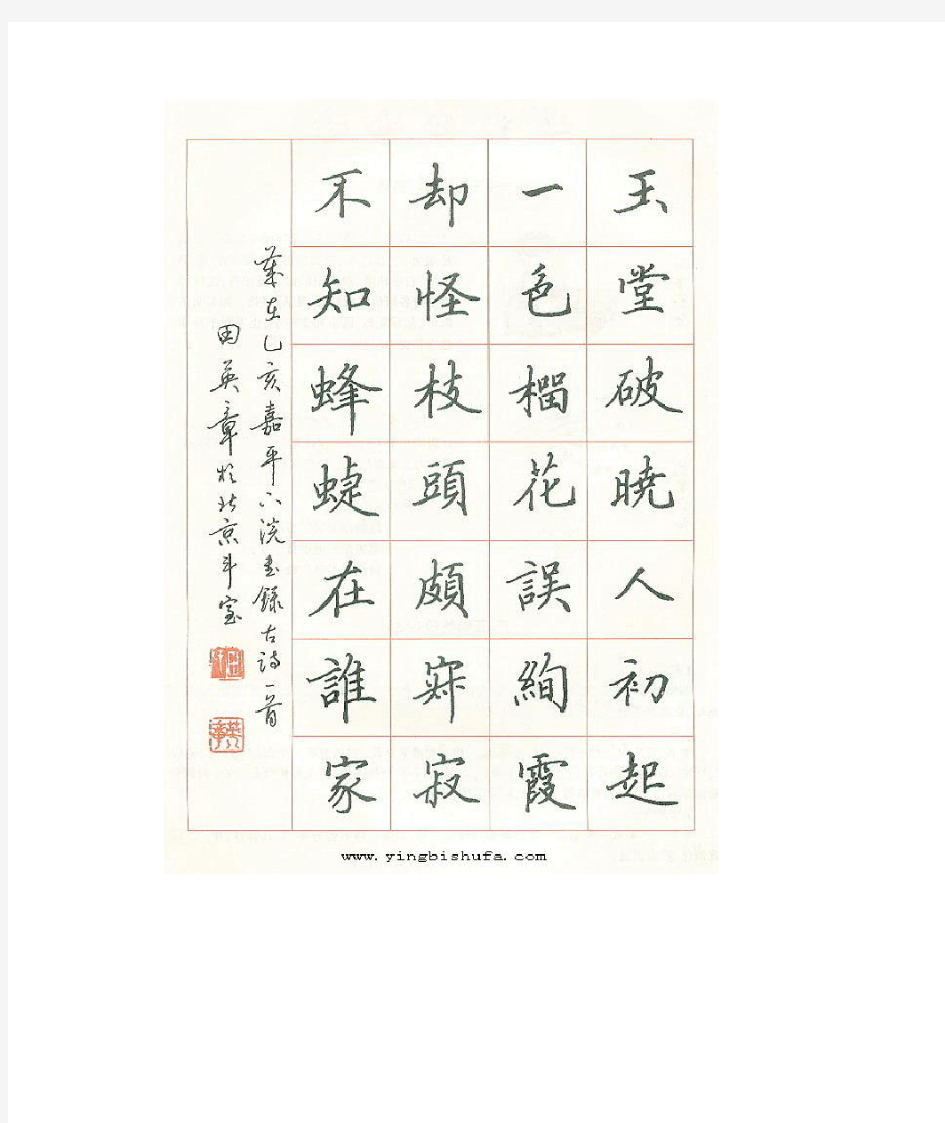 玉堂破曉人初起
一色榴花誤絢霞
却怪枝頭頗寂
不知蜂蜨在誰家
歲在乙亥嘉平下浣書錄古詩一首
田英章於北京斗室
英章
www.yingbishufa.com